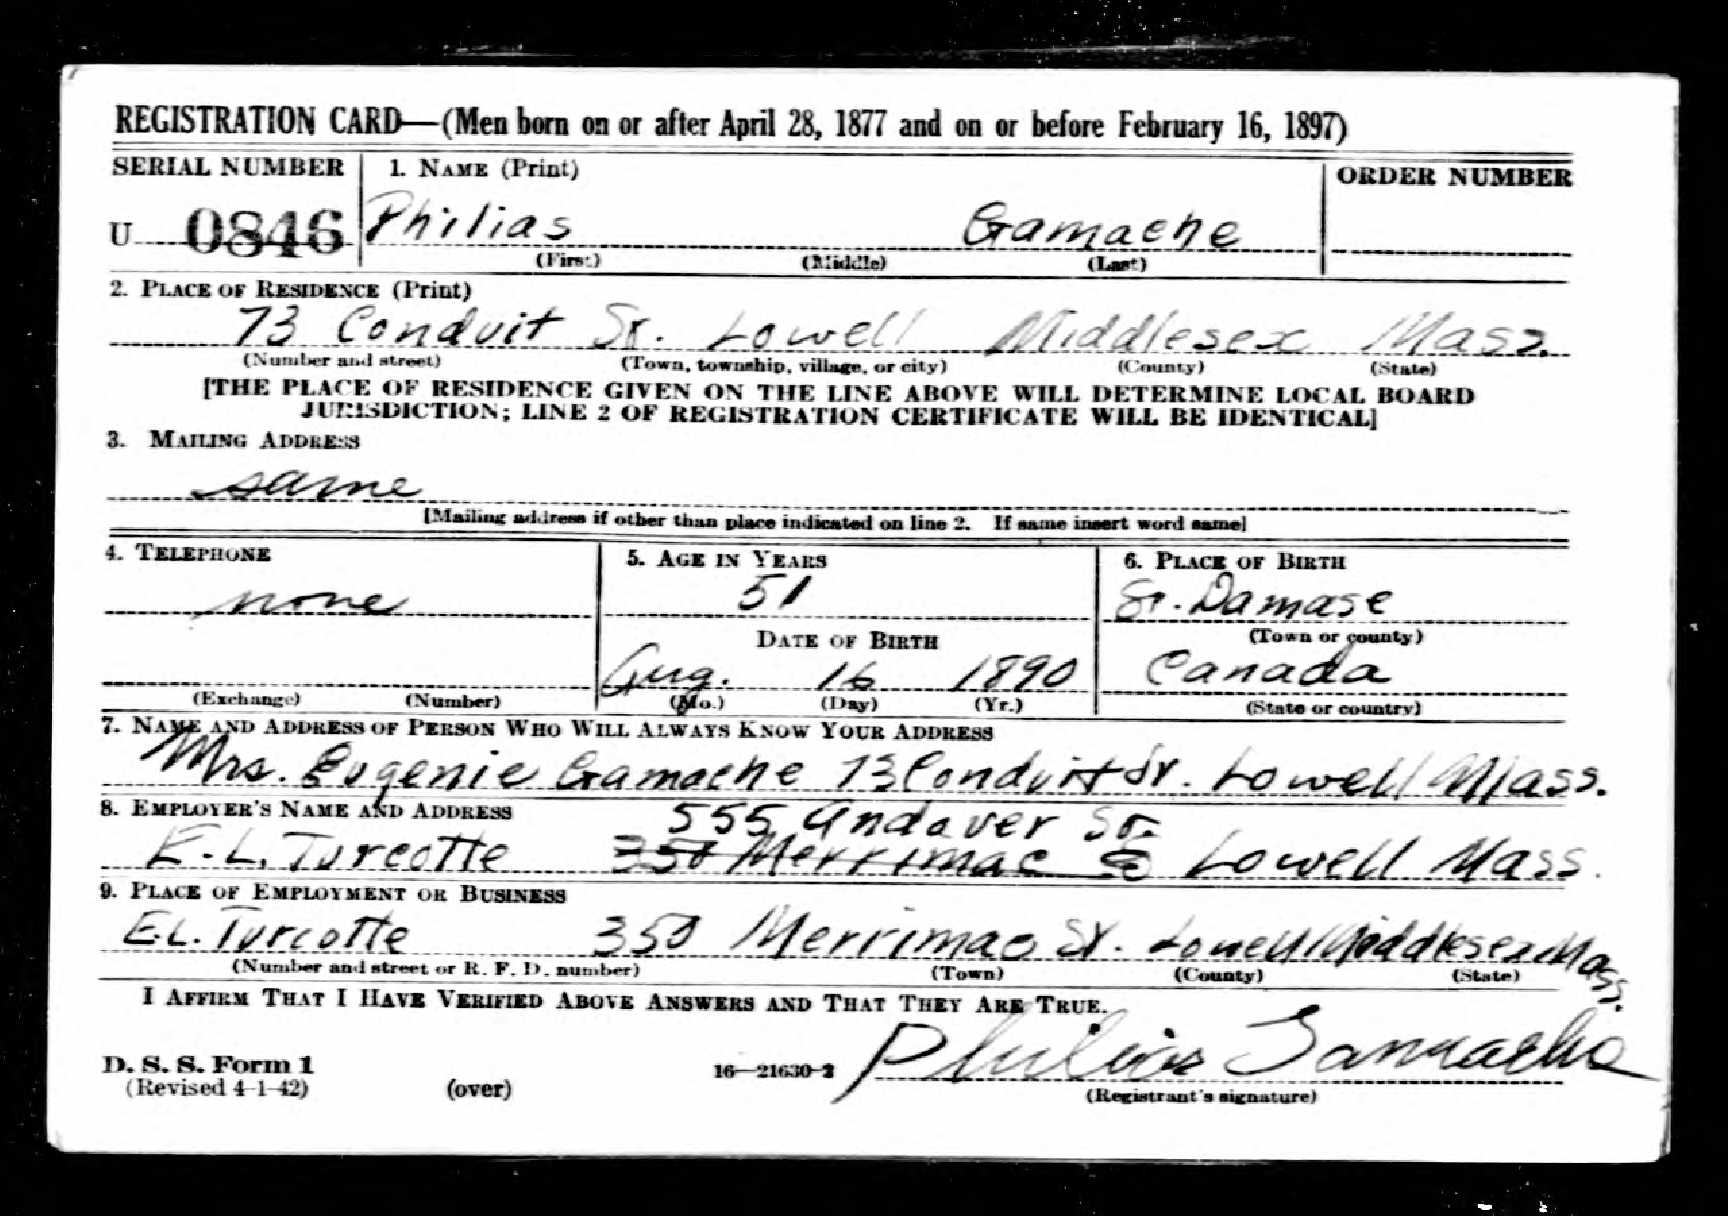 REGISTRATION CARD—(Men born on or after April 28, 1877 and on or before February 16, 1897)
SERIAL NUMBER 1. NAME (Print) ORDER NUMBER
U 0846 Philias Gamache
(First) (Middle) (Last)
2. PLACE OF RESIDENCE (Print)
73 Conduit St. Lowell Middlesex Mass.
(Number and street) (Town, township, village, or city) (County) (State)
[THE PLACE OF RESIDENCE GIVEN ON THE LINE ABOVE WILL DETERMINE LOCAL BOARD
JURISDICTION; LINE 2 OF REGISTRATION CERTIFICATE WILL BE IDENTICAL]
3. MAILING ADDRESS
same
[Mailing address if other than place indicated on line 2. If same insert word same]
4. TELEPHONE 5. AGE IN YEARS 6. PLACE OF BIRTH
none 51 St. Damase
DATE OF BIRTH (Town or county)
Aug. 16 1890 Canada
(Exchange) (Number) (Mo.) (Day) (Yr.) (State or country)
7. NAME AND ADDRESS OF PERSON WHO WILL ALWAYS KNOW YOUR ADDRESS
Mrs. Eugenie Gamache 73 Conduit St. Lowell Mass.
8. EMPLOYER'S NAME AND ADDRESS 555 Andover St.
E. L. Turcotte 350 Merrimac St Lowell Mass.
9. PLACE OF EMPLOYMENT OR BUSINESS
E.L. Turcotte 350 Merrimac St. Lowell Middlesex Mass.
(Number and street or R. F. D. number) (Town) (County) (State)
I AFFIRM THAT I HAVE VERIFIED ABOVE ANSWERS AND THAT THEY ARE TRUE.
Philias Gamache
D. S. S. Form 1 16—21630-2
(Revised 4-1-42) (over) (Registrant's signature)